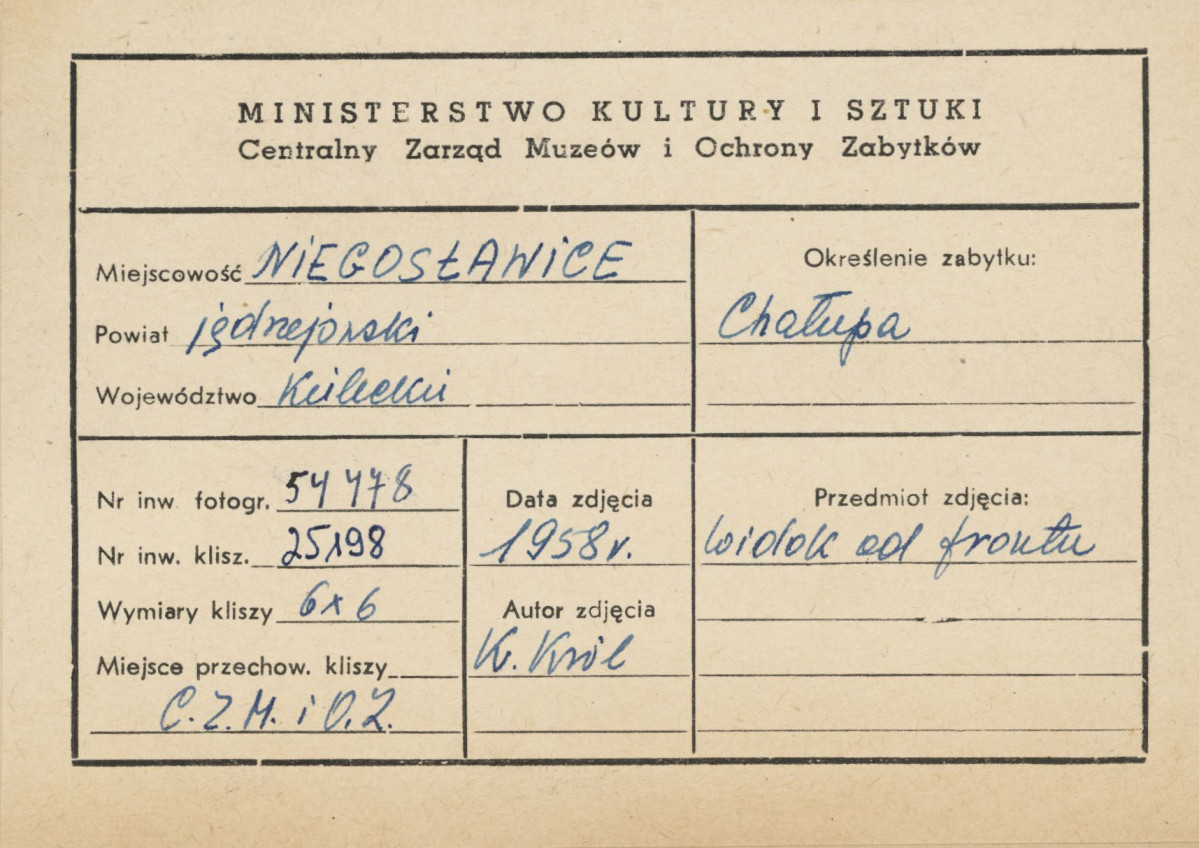 MINISTERSTWO KULTURY I SZTUKI
Centralny Zarząd Muzeów i Ochrony Zabytków
Miejscowość NIEGOSŁAWICE
Powiat jędrzejowski
Województwo Kieleckie
Określenie zabytku:
Chałupa
Nr inw. fotogr. 54 478
Nr inw. klisz. 25198
Wymiary kliszy 6x6
Miejsce przechow. kliszy
C.Z.M. i O.Z.
Data zdjęcia
1958 r.
Autor zdjęcia
K. Król
Przedmiot zdjęcia:
Widok od frontu